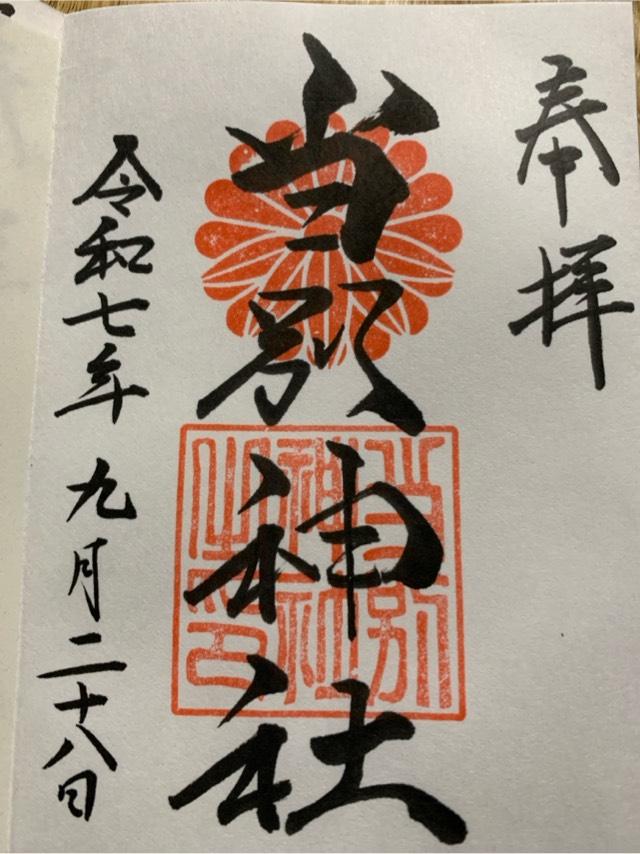 奉拝
当別神社
当別神社之印
令和七年九月二十八日